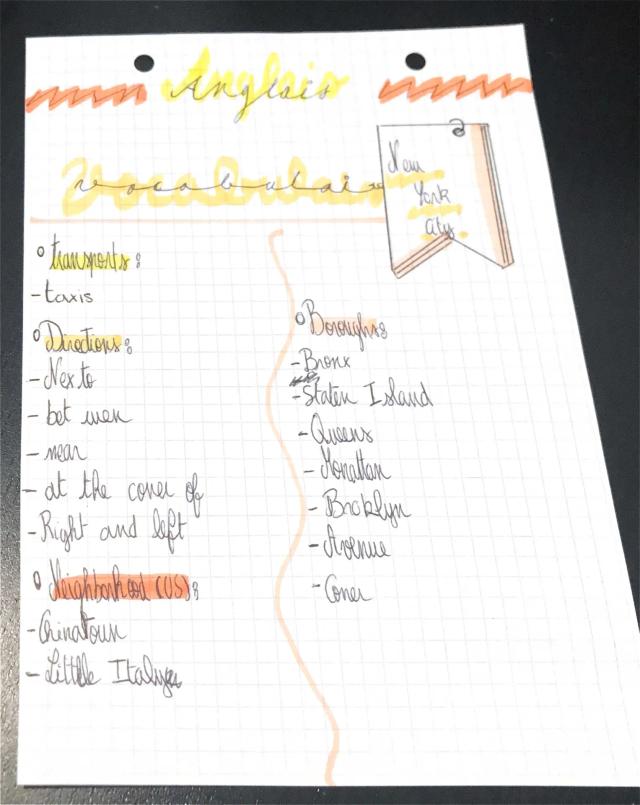 Anglais
Vocabulaire
New
York
City.
Transports:
- taxis
Directions:
- Next to
- bet wen
- near
- at the coner of
- Right and left
Neighborhood (US):
- Chinatown
- Little Italy
Boroughs
- Bronx
- Staten Island
- Queens
- Monattan
- Brooklyn
- Avenue
- Coner